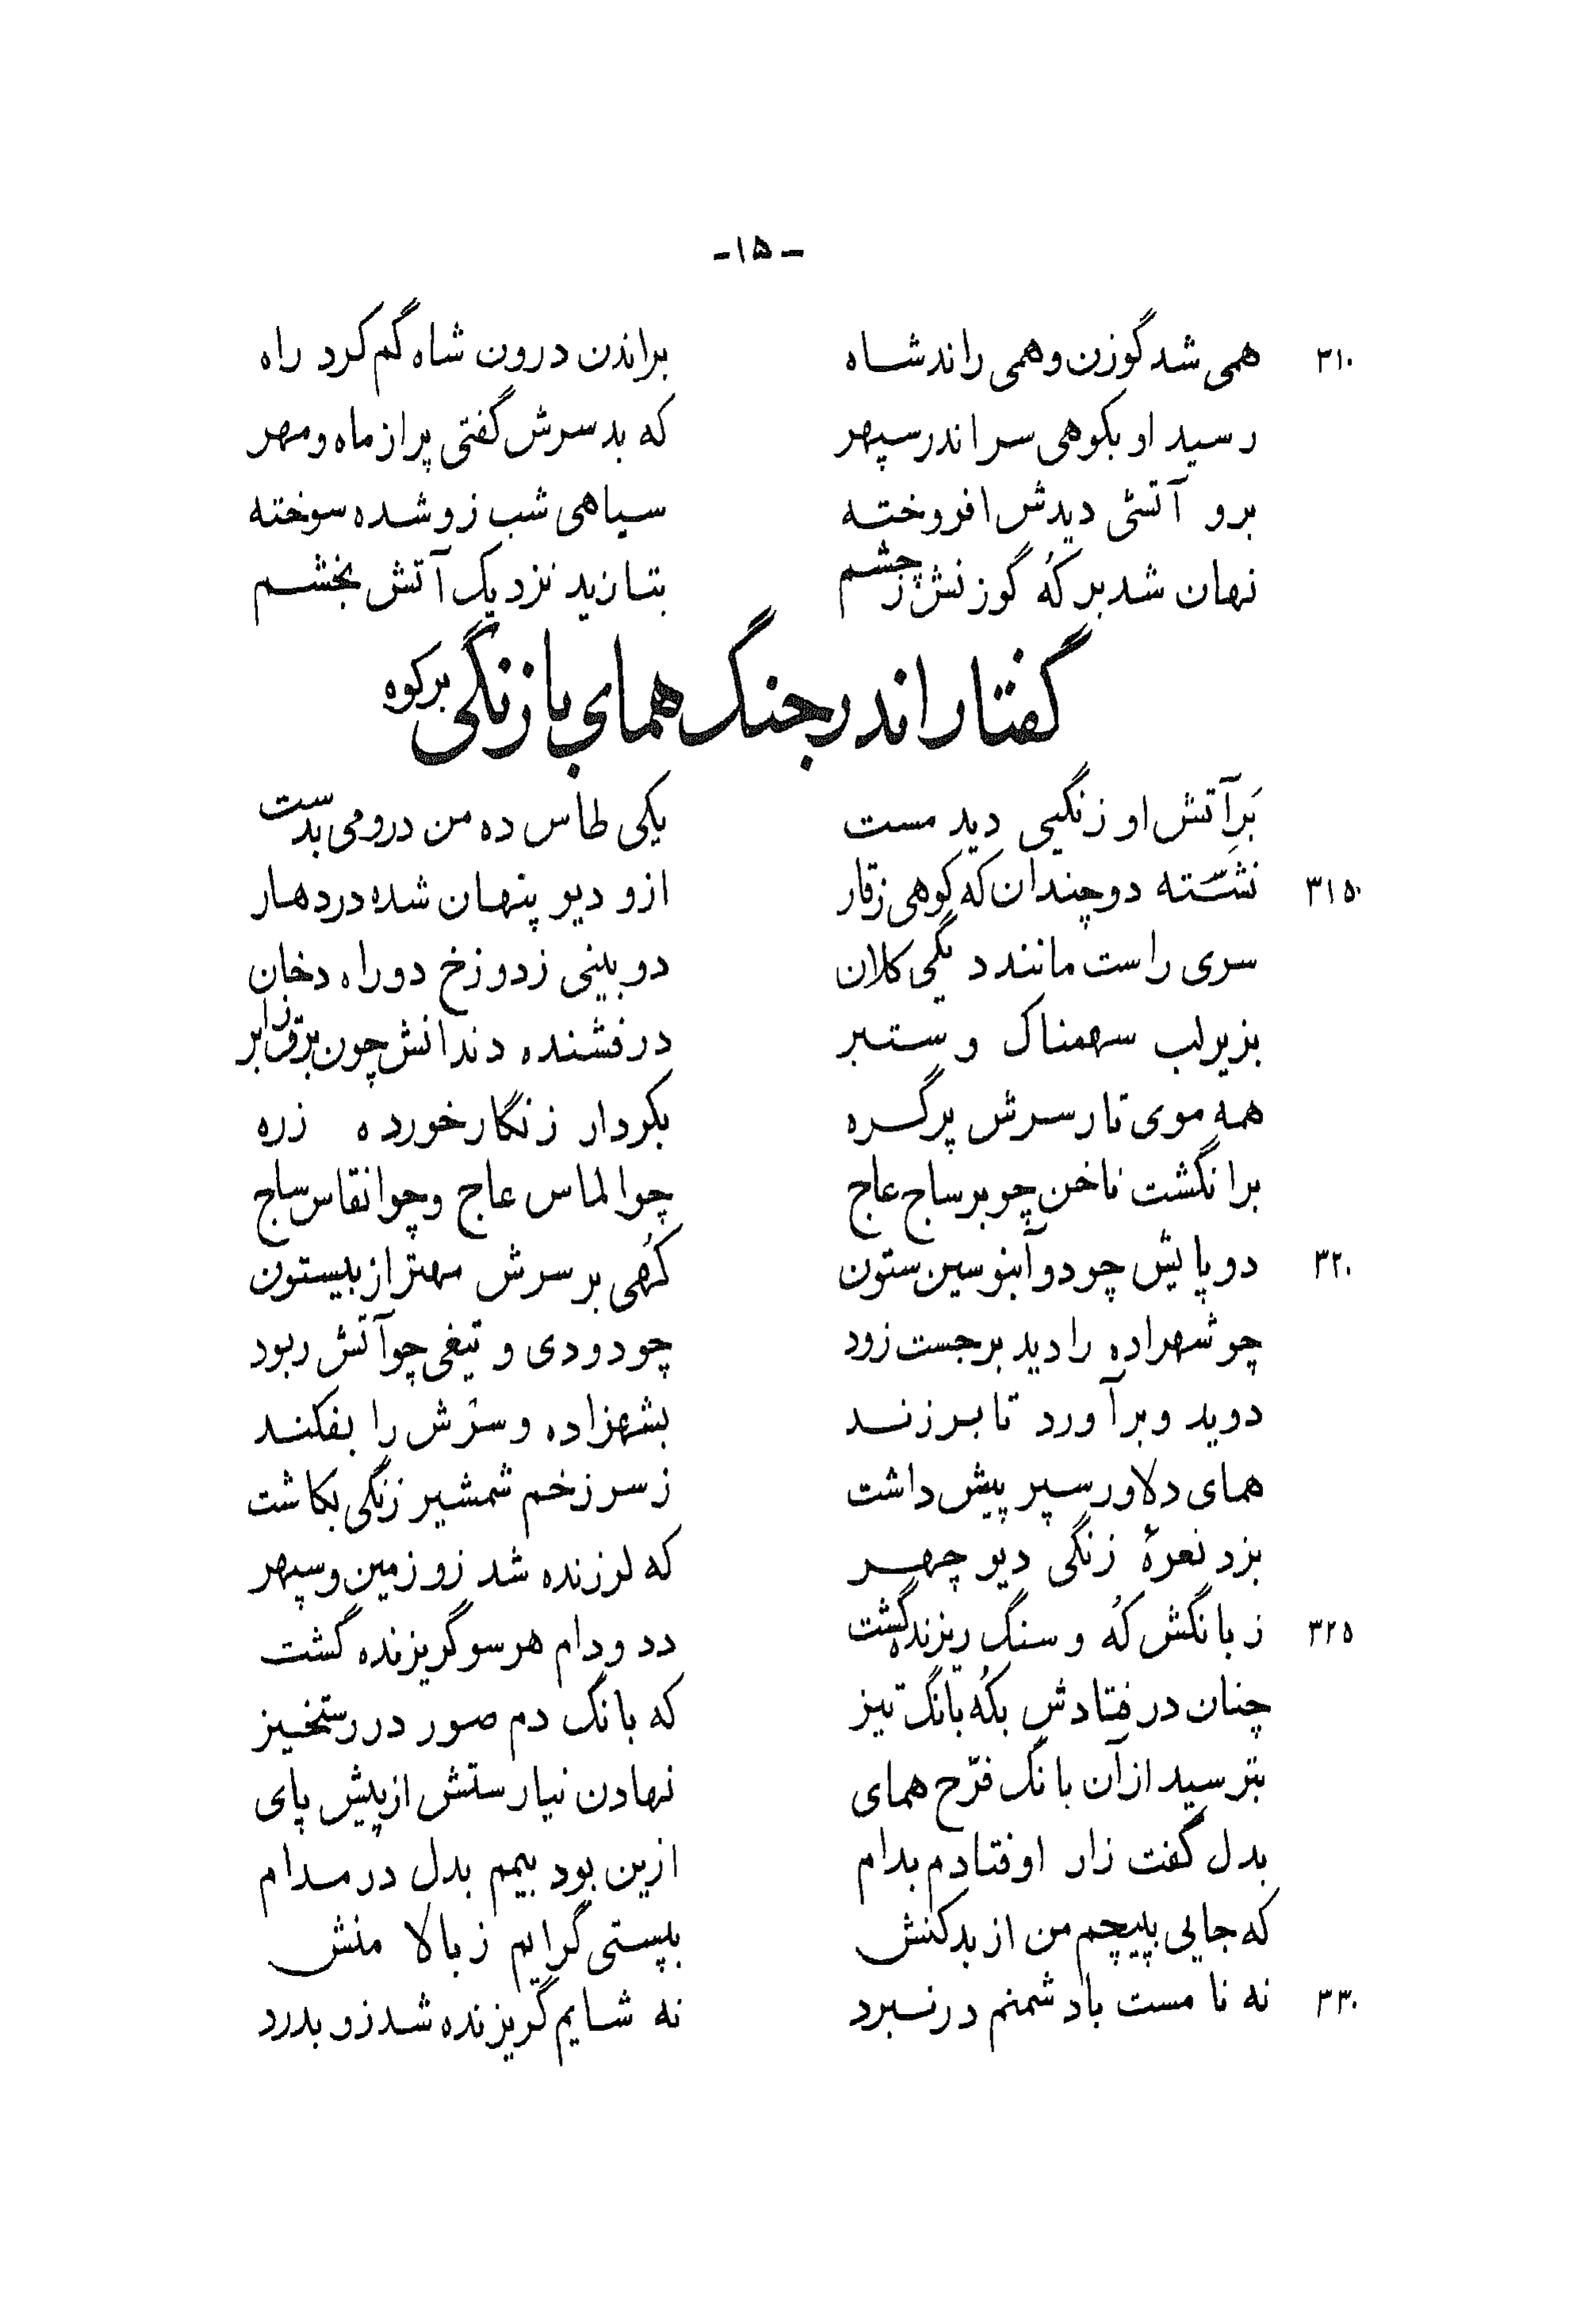 -۱۵-
۳۱۰ همی شد گوزن و همی راند شاه براندن درون شاه گم کرد راه
رسید او بکوهی سر اندر سپهر که بد سرش گفتی پر از ماه و مهر
برو آتشی دیدش افروخته سیاهی شب زو شده سوخته
نهان شد بر کُه گوزنش ز چشم بتازید نزدیک آتش بخشم
گفتار اندر جنگ همای با زنگی بر کوه
بَرِ آتش او زنگیی دید مست یکی طاس ده من درو می بدست
۳۱۵ نشسته دو چندان که کوهی ز قار ازو دیو پنهان شده در دهار
سری راست مانند دیگی کلان دو بینی ز دوزخ دو راه دخان
بزیر لب سهمناک و ستبر درفشنده دندانش چون برق ز ابر
همه موی تار سرش پر گره بکردار زنگار خورده زره
بر انگشت ناخن چو بر ساج عاج چو الماس عاج و چو انقاس ساج
۳۲۰ دو پایش چو دو آبنوسین ستون کُهی بر سرش مهتر از بیستون
چو شهزاده را دید برجست زود چو دودی و تیغی چو آتش ربود
دوید و برآورد تا بر زند بشهزاده و سرش را بفکند
همای دلاور سپر پیش داشت ز سر زخم شمشیر زنگی بکاشت
بزد نعرهٔ زنگی دیو چهر که لرزنده شد زو زمین و سپهر
۳۲۵ ز بانگش کُه و سنگ ریزنده گشت دد و دام هر سو گریزنده گشت
چنان در فتادش بکُه بانگ تیز که بانگ دم صور در رستخیز
بترسید از آن بانگ فرّخ همای نهادن نیارستش از پیش پای
بدل گفت زار اوفتادم بدام ازین بود بیمم بدل در مدام
که جایی بپیچم من از بدکنش بپستی گرایم ز بالا منش
۳۳۰ نه نامست با دشمنم در نبرد نه شایم گریزنده شد زو بدرد